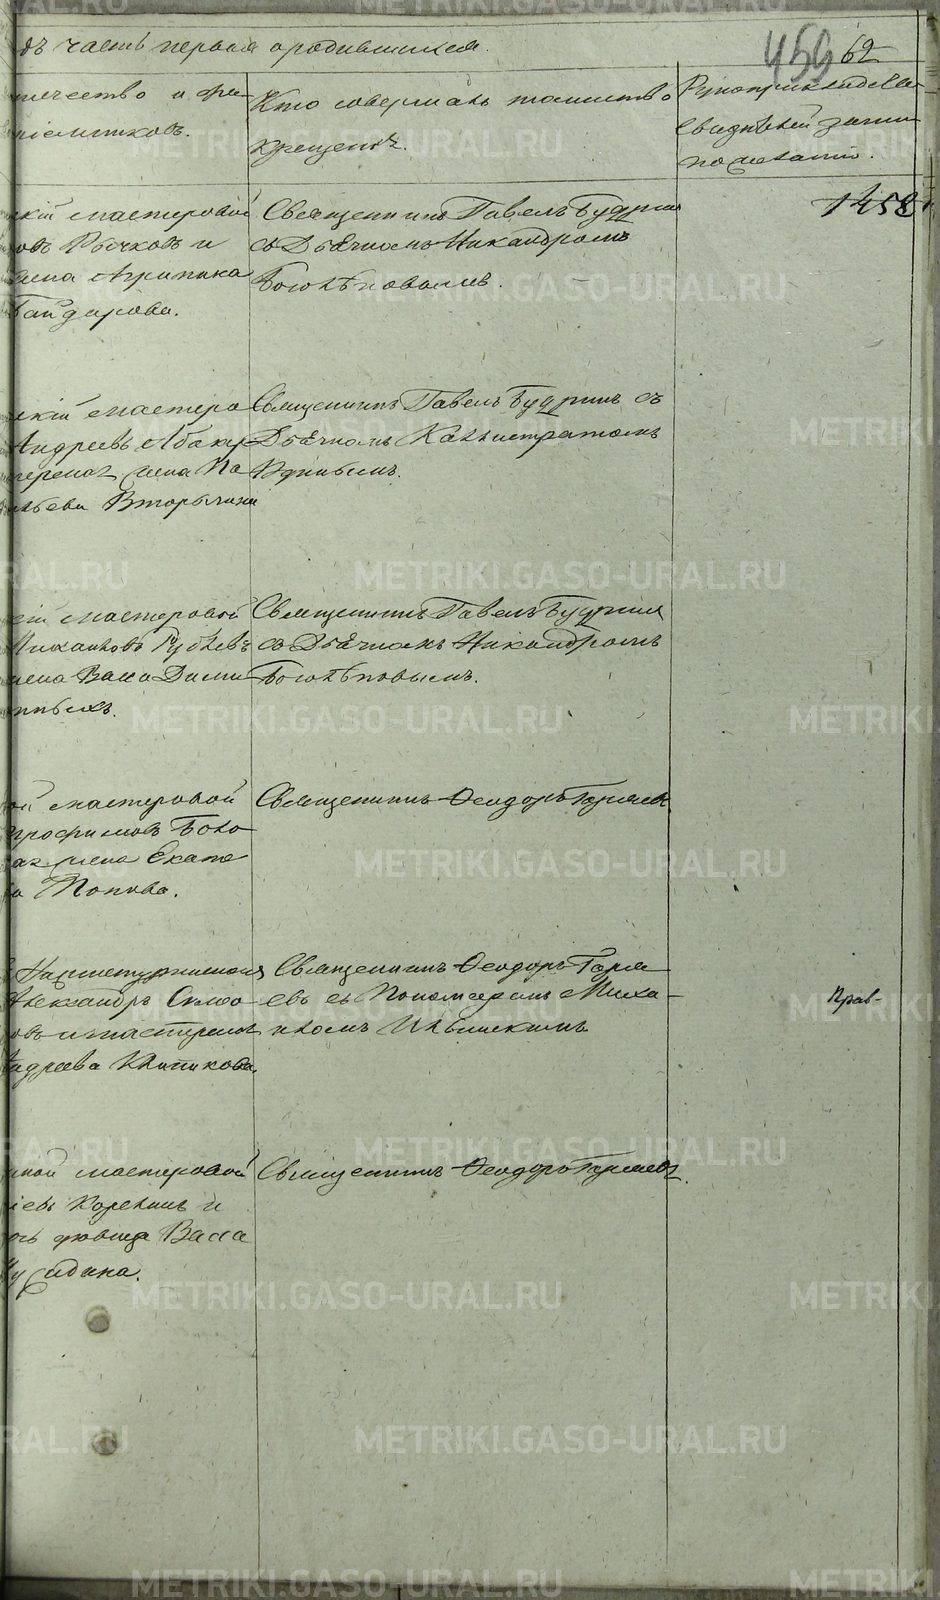 дъ часть первая о родившихся.
459 62
течество и фа-
пріемниковъ.
Кто совершалъ таинство
крещенія.
Рукоприкладства
свидѣтелей записи
по желанію.
1458
скій мастеровой
овъ Рычковъ и
жена Агрипина
Байдарова.
Священникъ Павелъ Будрин
съ Дьячкомъ Никандромъ
Боголѣповымъ.
скій мастеро
Андреевъ
жена Па
Вторыгина
Священникъ Павелъ Будринъ съ
Дьячкомъ Каллистратомъ
Удинымъ.
кій мастеровой
Михайловъ
жена Васса Дими
ныхъ.
Священникъ Павелъ Будрин
съ Дьячкомъ Никандромъ
Боголѣповымъ.
ой мастеровой
трофимовъ Бого
жена Екате
а Попова.
Священникъ Ѳеодоръ Горяев
Нижнетуринскаго
Александръ
овъ и мастерская
Андреева Кличкова.
Священникъ Ѳеодоръ Горя
евъ съ Пономаремъ Миха-
иломъ Ильинскимъ
Прав-
ной мастеровой
іевъ Корелинъ и
очь дѣвица Васса
Священникъ Ѳеодоръ Горяевъ.
METRIKI.GASO-URAL.RU